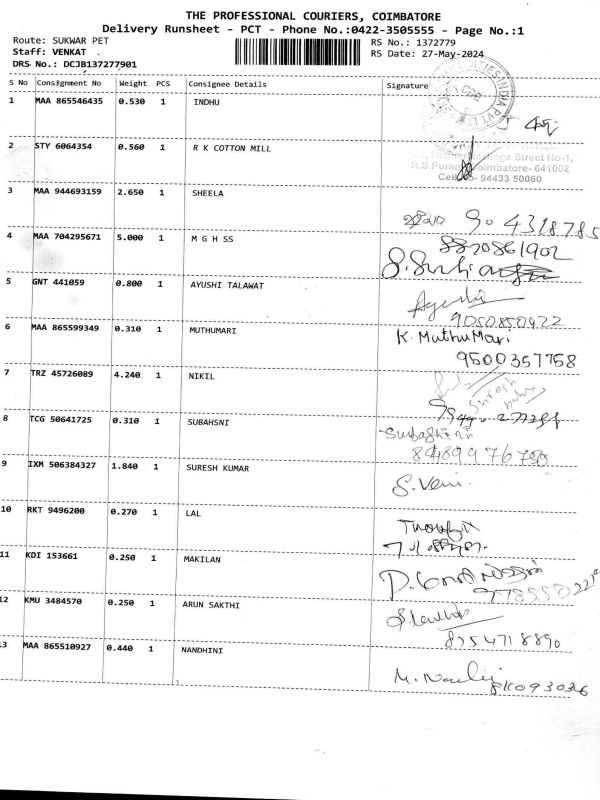 THE PROFESSIONAL COURIERS, COIMBATORE
Delivery Runsheet - PCT - Phone No.:0422-3505555 - Page No.:1
Route: SUKWAR PET
RS No.: 1372779
Staff: VENKAT .
RS Date: 27-May-2024
DRS No.: DCJB137277901
S No Consignment No Weight PCS Consignee Details Signature
1 MAA 865546435 0.530 1 INDHU
2 STY 6064354 0.560 1 R K COTTON MILL
Street No-1,
Coimbatore- 641002
94433 50060
3 MAA 944693159 2.650 1 SHEELA
4 MAA 704295671 5.000 1 M G H SS
8870861902
5 GNT 441059 0.800 1 AYUSHI TALAWAT
9050850422
6 MAA 865599349 0.310 1 MUTHUMARI K. MuthuMari
9500357758
7 TRZ 45726089 4.240 1 NIKIL
8 TCG 50641725 0.310 1 SUBAHSNI
9 IXM 506384327 1.840 1 SURESH KUMAR S. Veni
10 RKT 9496200 0.270 1 LAL
11 KDI 153661 0.250 1 MAKILAN
12 KMU 3484570 0.250 1 ARUN SAKTHI
8754718890
13 MAA 865510927 0.440 1 NANDHINI